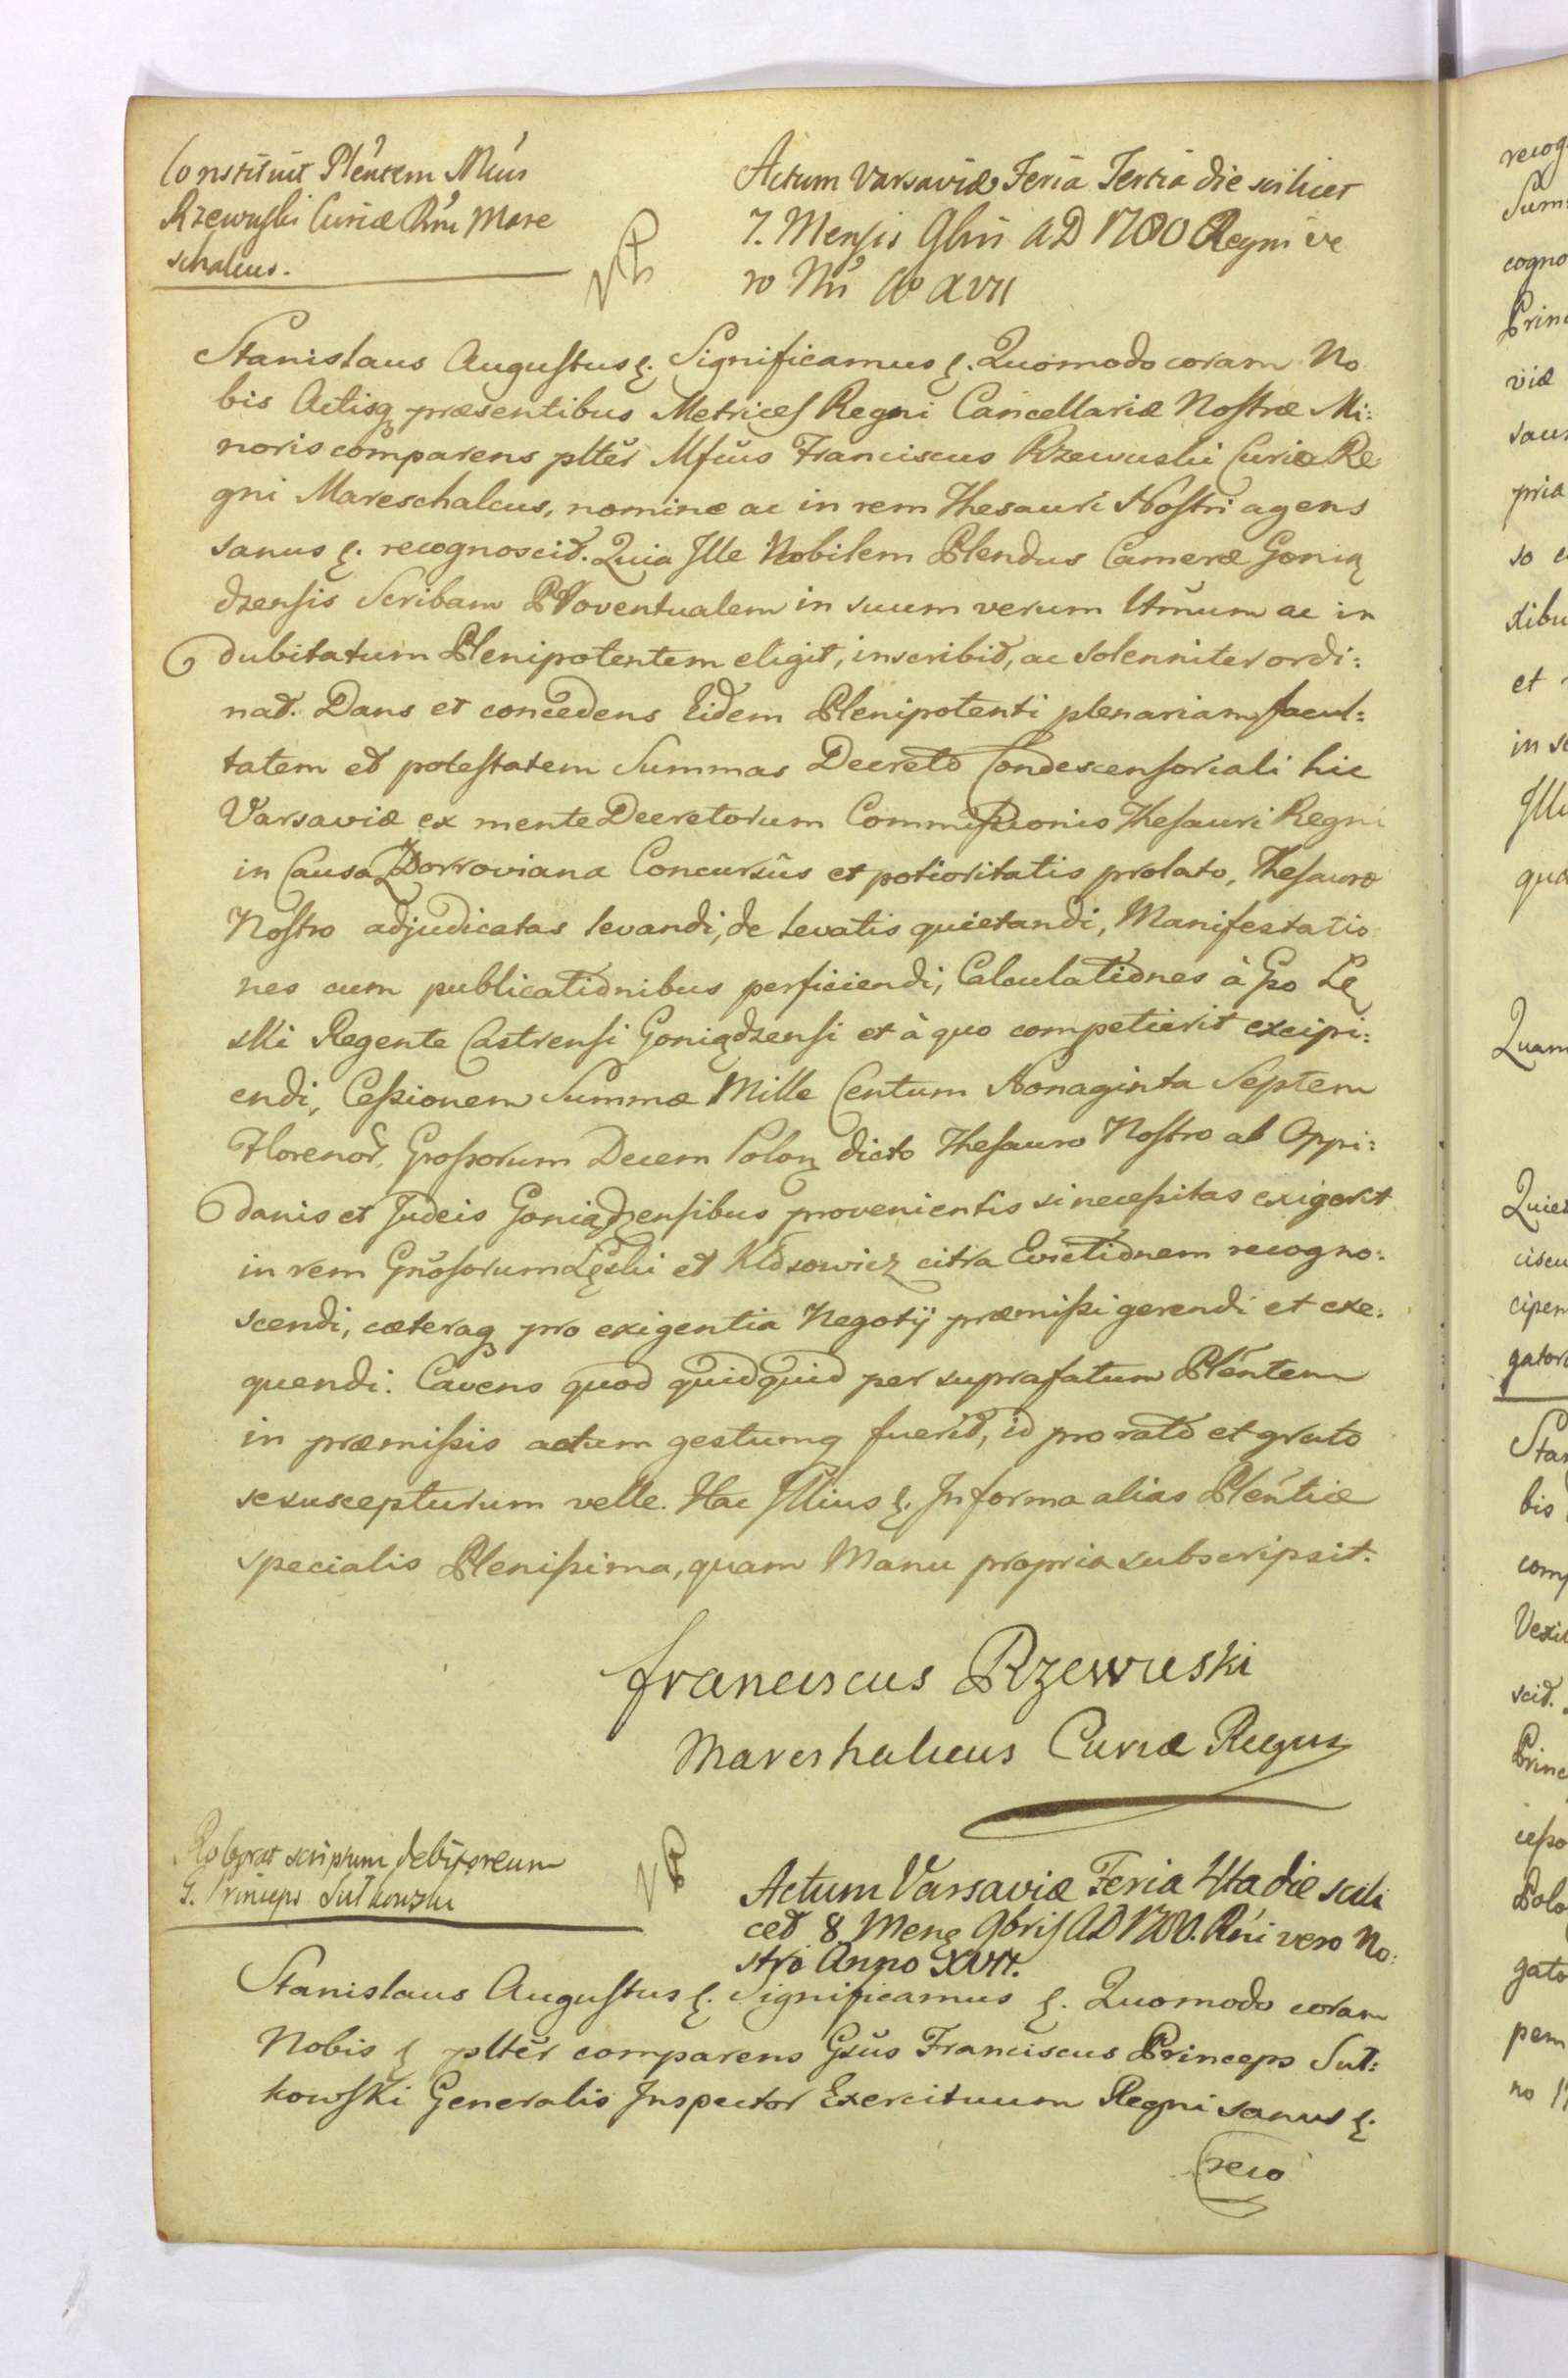 Constituit Plentem Mcus
Rzewuski Curiæ Rni Mare
schalcus.
Actum Varsaviæ Feria Tertia die scilicet
7. Mensis 9bris AD 1780 Regni ve
ro Nri Ao XVII
Stanislaus Augustus &. Significamus &. Quomodo coram No
bis Actisq præsentibus Metrices Regni Cancellariæ Nostræ Mi:
noris comparens plter Mfcus Franciscus Rzewuski Curiæ Re
gni Mareschalcus, nomine ac in rem Thesauri Nostri agens
sanus &. recognoscit. Quia Ille Nobilem Blendus Cameræ Gonią
dzensis Scribam Proventualem in suum verum ltmum ac in
dubitatum Plenipotentem eligit, inscribit, ac solenniter ordi:
nat. Dans et concedens Eidem Plenipotenti plenariam facul:
tatem et potestatem Summas Decreto Condescensoriali hic
Varsaviæ ex mente Decretorum Commissionis Thesauri Regni
in Causa Zdorroviana Concursûs et potioritatis prolato, Thesauro
Nostro adjudicatas levandi, de levatis quietandi, Manifestatio
nes cum publicationibus perficiendi, Calculationes à Gso Lę
ski Regente Castrensi Goniądzensi et à quo competierit excipi:
endi, Cessionem Summæ Mille Centum Nonaginta Septem
Florenor. Grossorum Decem Polon dicto Thesauro Nostro ab Oppi:
danis et Judeis Goniądzensibus provenientis si necessitas exigerit
in rem Gnosorum Lęski et Kłosowicz citra Evictionem recogno:
scendi, cæteraq pro exigentia Negotij præmissi gerendi et exe:
quendi. Cavens quod quidquid per suprafatum Plentem
in præmissis actum gestumq fuerit, id pro rato et grato
se suscepturum velle. Hac Illius &. In forma alias Plentiæ
specialis Plenissima, quam Manu propria subscripsit.
Franciscus Rzewuski
Mareshalcus Curiæ Regni
Roborat scriptum debitoreum
G. Princeps Sułkowski
Actum Varsaviæ Feria 4ta die scili
cet 8 Mens 9bris AD 1780. Rni vero No:
stri Anno XVII.
Stanislaus Augustus &. Significamus &. Quomodo coram
Nobis & plter comparens Gsus Franciscus Princeps Suł:
kowski Generalis Inspector Exercituum Regni sanus &.
reco
recog
Sum
cogno
Prin
viæ
sau
pria
so
xibu
et
in s
Ille
qua
Quam
Quiet
ciscu
cipem
gator
Sta
bis
comp
Vexil
scit.
Princ
cesso
Polo
gato
pem
no 17